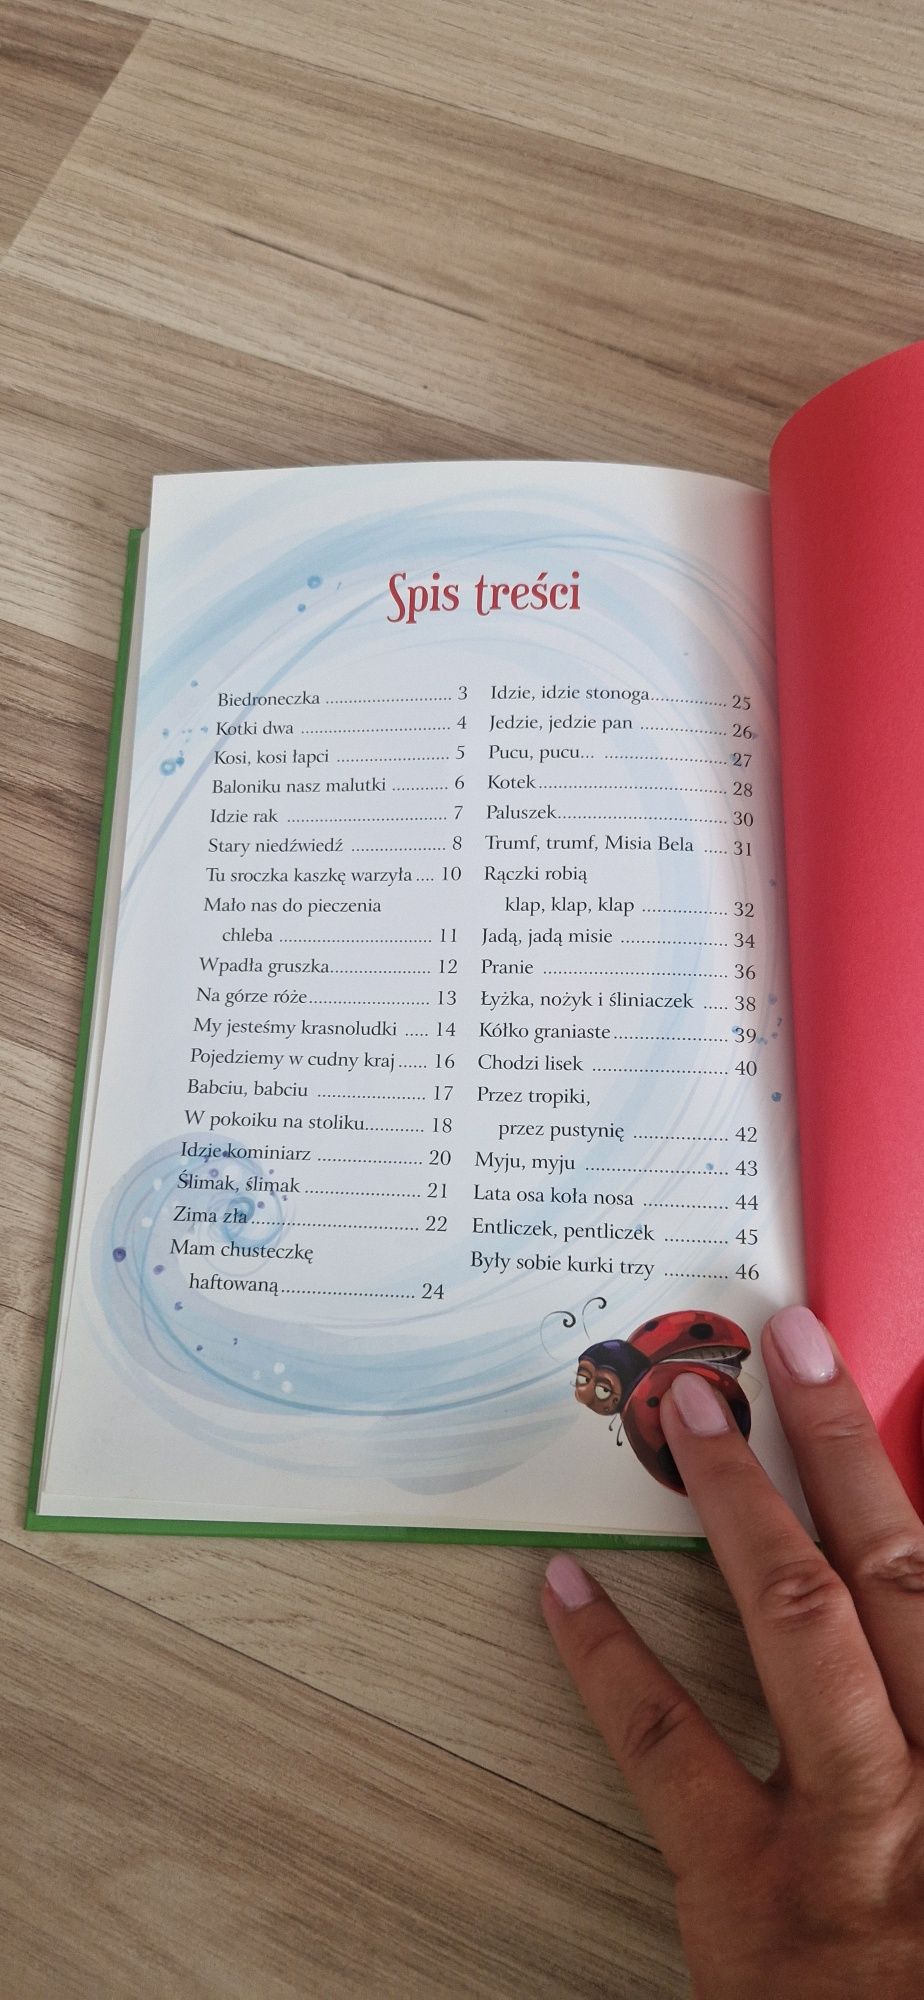 Spis treści
Biedroneczka ........................... 3
Kotki dwa ................................ 4
Kosi, kosi łapci ........................ 5
Baloniku nasz malutki ............ 6
Idzie rak .................................. 7
Stary niedźwiedź .................... 8
Tu sroczka kaszkę warzyła .... 10
Mało nas do pieczenia
chleba ................................. 11
Wpadła gruszka...................... 12
Na górze róże.......................... 13
My jesteśmy krasnoludki ..... 14
Pojedziemy w cudny kraj...... 16
Babciu, babciu ....................... 17
W pokoiku na stoliku............. 18
Idzie kominiarz ...................... 20
Ślimak, ślimak ........................ 21
Zima zła................................... 22
Mam chusteczkę
haftowaną............................ 24
Idzie, idzie stonoga................ 25
Jedzie, jedzie pan .................. 26
Pucu, pucu... .......................... 27
Kotek........................................ 28
Paluszek.................................... 30
Trumf, trumf, Misia Bela ..... 31
Rączki robią
klap, klap, klap .................. 32
Jadą, jadą misie ...................... 34
Pranie ....................................... 36
Łyżka, nożyk i śliniaczek ..... 38
Kółko graniaste........................ 39
Chodzi lisek ............................ 40
Przez tropiki,
przez pustynię .................... 42
Myju, myju .............................. 43
Lata osa koła nosa .................. 44
Entliczek, pentliczek ............. 45
Były sobie kurki trzy ............. 46